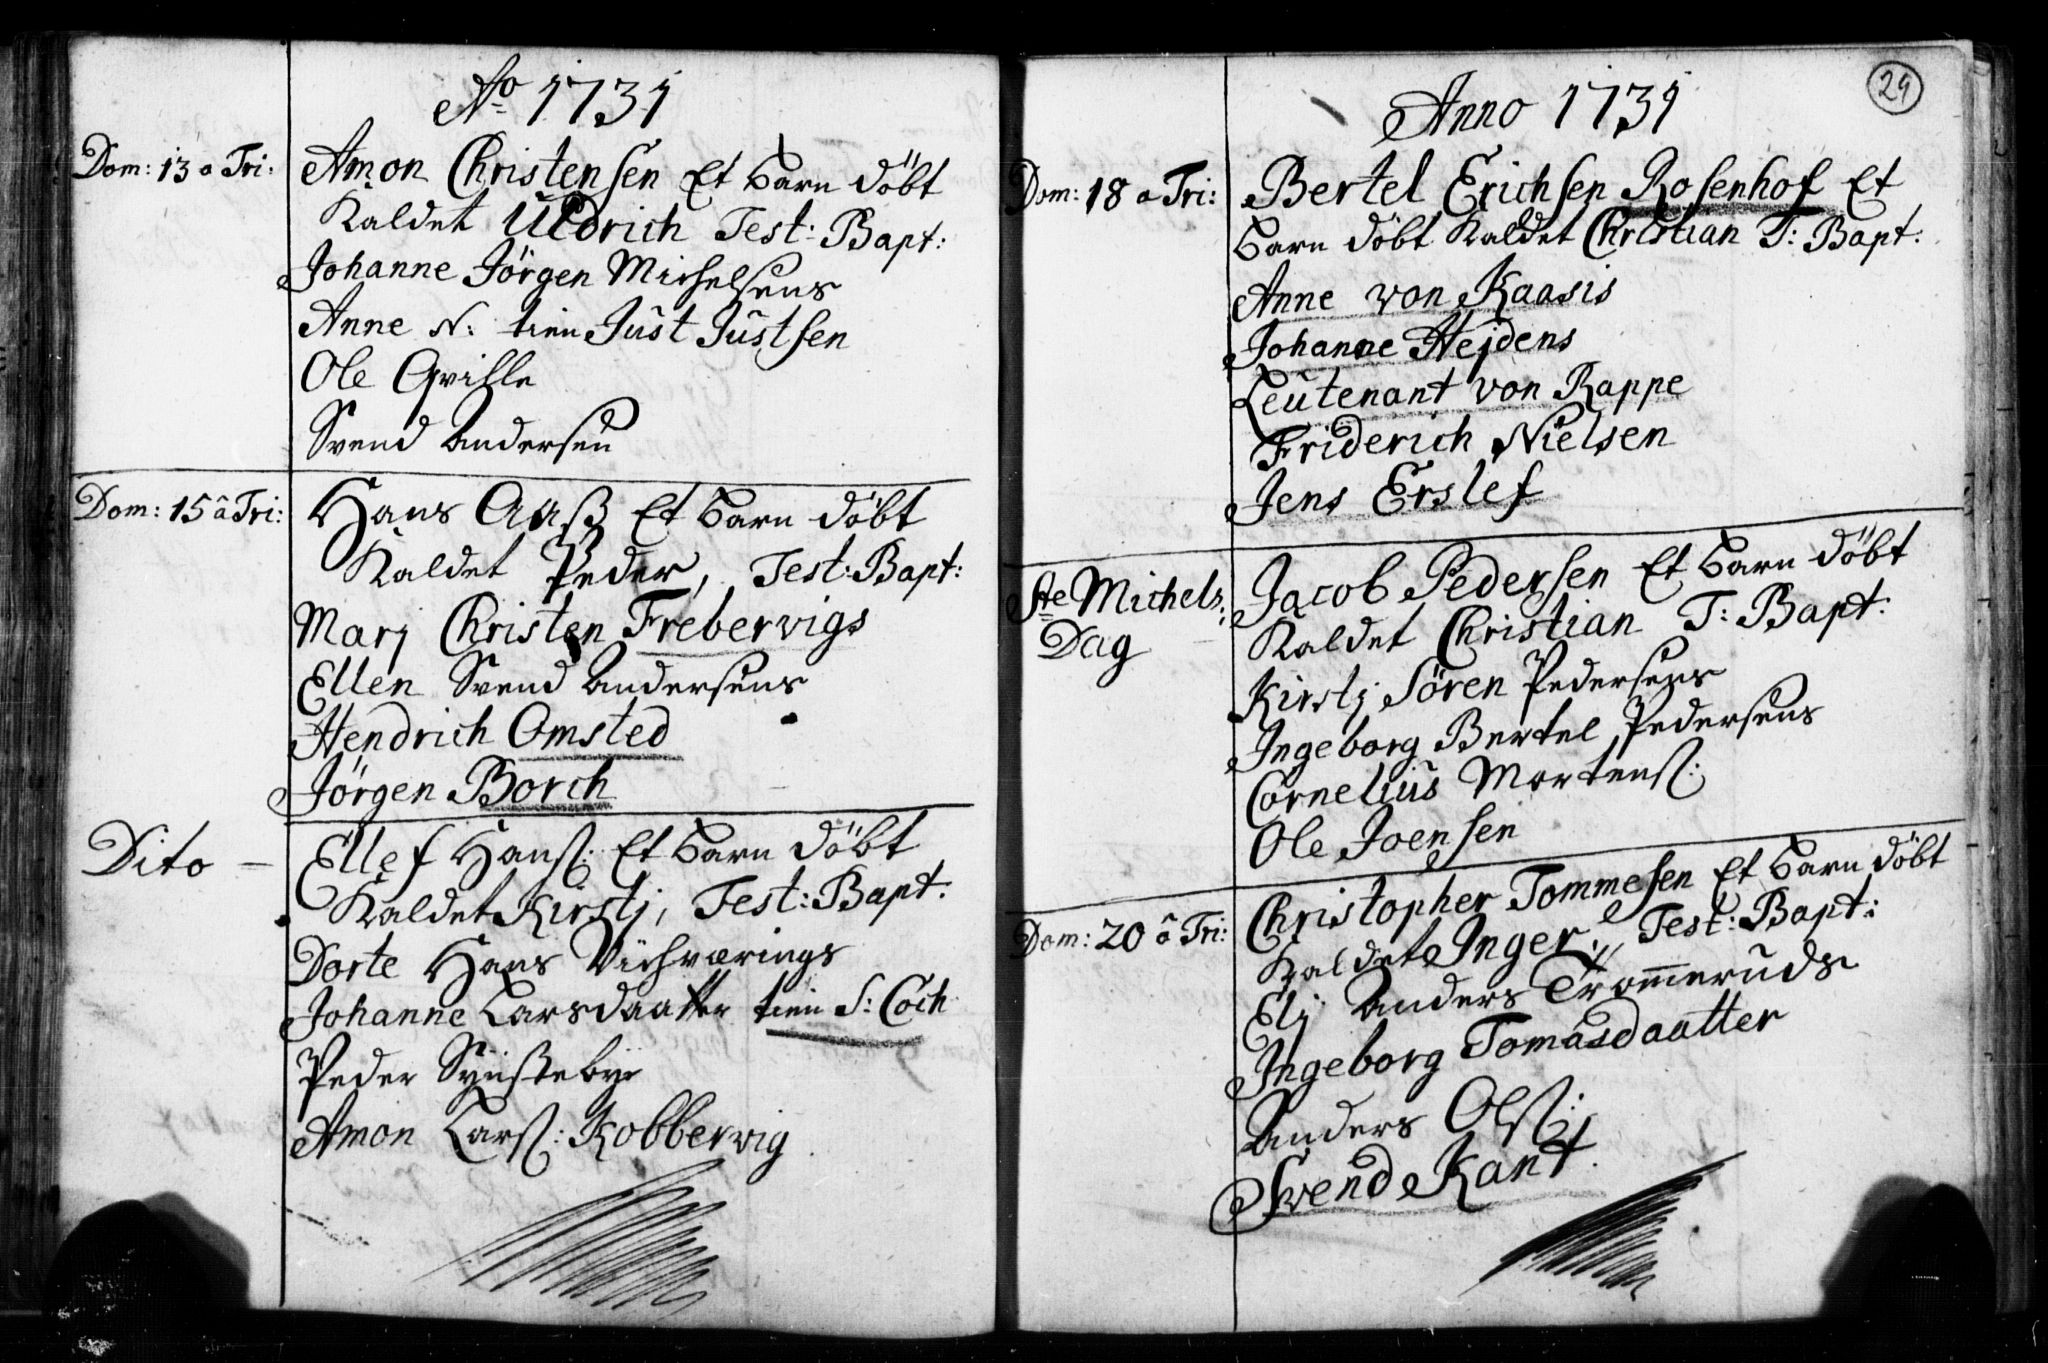 Ao 1731
Dom: 13 a Tri: Amon Christensen Et Barn döbt
Kaldet Uldrich Test: Bapt:
Johanne Jörgen Michelsens
Anne N: tien Just Justsen
Ole Qville
Svend Andersen
Dom: 15 â Tri: Hans Aaß Et Barn döbt
Kaldet Peder, Test: Bapt:
Marj Christen Frebervigs
Ellen Svend Andersens
Hendrich Omsted
Jörgen Borch
Dito — Ellef Hanß: Et Barn döbt
Kaldet Kirstj, Test: Bapt:
Dorte Hans
Johanne Larsdaatter tien S: Coch
Peder
Amon Larß: Kobbervig
29
Anno 1731
Dom: 18 a Tri: Bertel Erichsen Rosenhof Et
Barn döbt Kaldet Christian T: Bapt:
Anne von Kaasis
Johanne Hejdens
Leutenant von Rappe
Friderich Nielsen
Jens Erslef
Ste Michels Dag Jacob Pedersen Et Barn döbt
Kaldet Christian T: Bapt:
Kirstj Sören Pedersens
Ingeborg Bertel Pedersens
Cornelius Mortenß:
Ole Joensen
Dom: 20 â Tri: Christopher Tommesen Et Barn döbt
Kaldet Inger, Test: Bapt:
Elj Anders Trom̄eruds
Ingeborg Tomasdaatter
Anders Olß:
Svend Kant